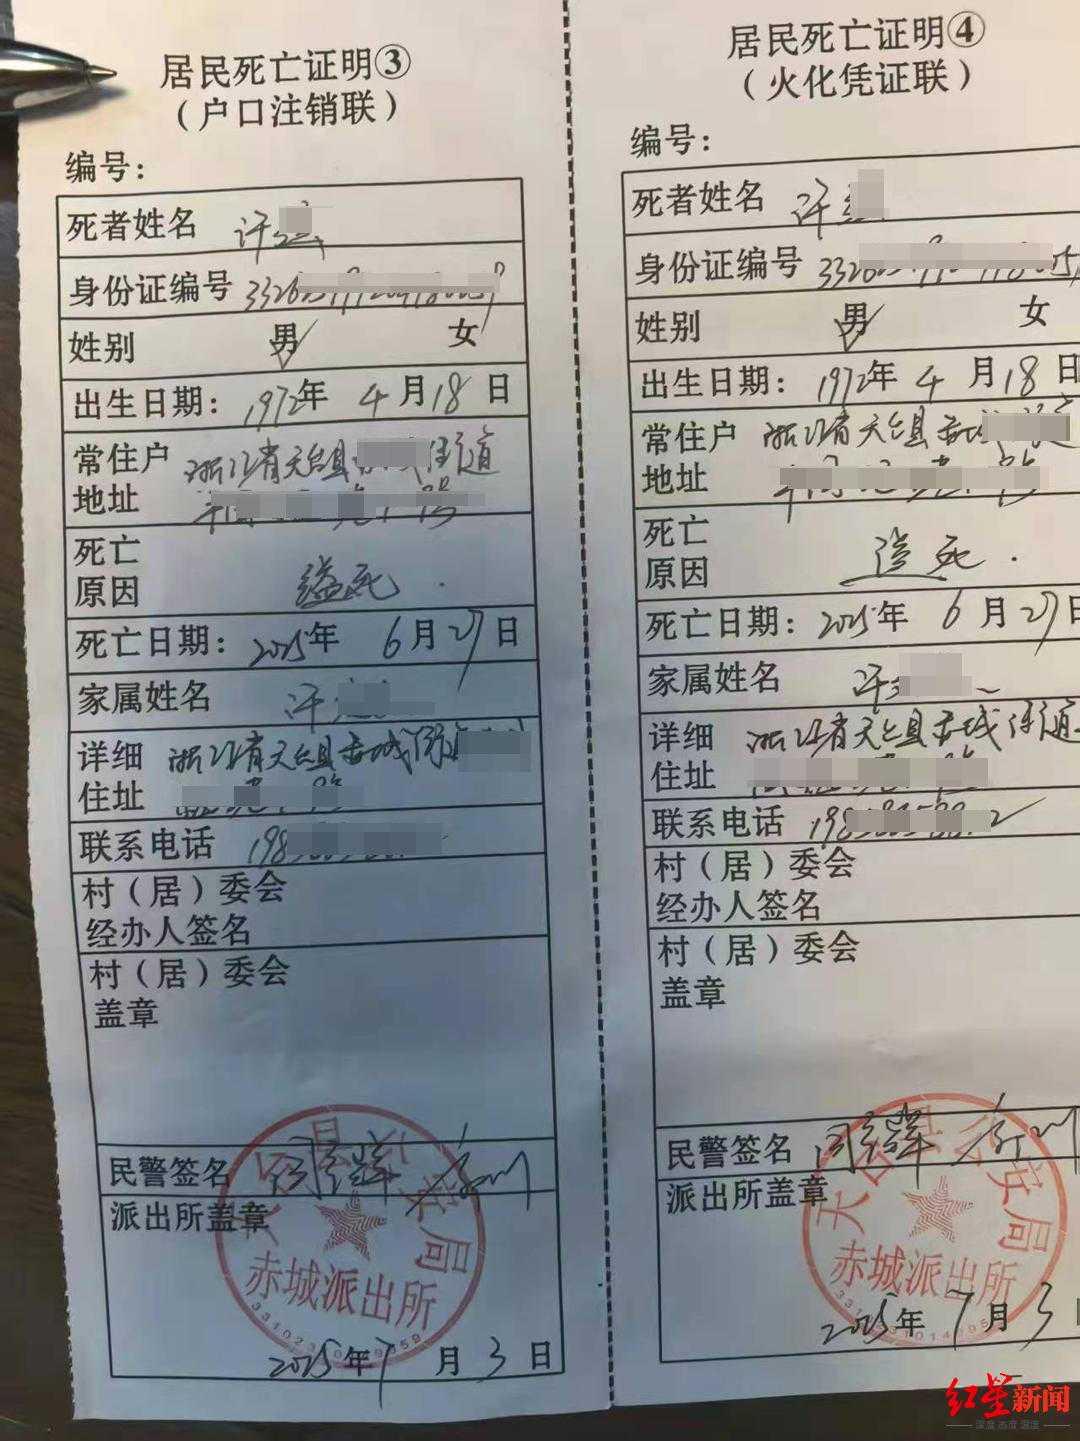 居民死亡证明③
（户口注销联）
编号：
死者姓名 许
身份证编号 33262
姓别 男 女
出生日期：1972年 4月18日
常住户 浙江省天台县 街道
地址
死亡
原因 缢死
死亡日期：2025年 6月27日
家属姓名 许
详细 浙江省天台县赤城街道
住址
联系电话 198
村（居）委会
经办人签名
村（居）委会
盖章
民警签名
派出所盖章
天台县公安局
赤城派出所
2025年7月3日
居民死亡证明④
（火化凭证联）
编号：
死者姓名 许
身份证编号 33262
姓别 男 女
出生日期：1972年 4月18日
常住户 浙江省天台县
地址
死亡
原因 缢死
死亡日期：2025年 6月27日
家属姓名 许
详细 浙江省天台县赤城街道
住址
联系电话 198
村（居）委会
经办人签名
村（居）委会
盖章
民警签名
派出所盖章
天台县公安局
赤城派出所
2025年7月3日
红星新闻
深度 态度 温度